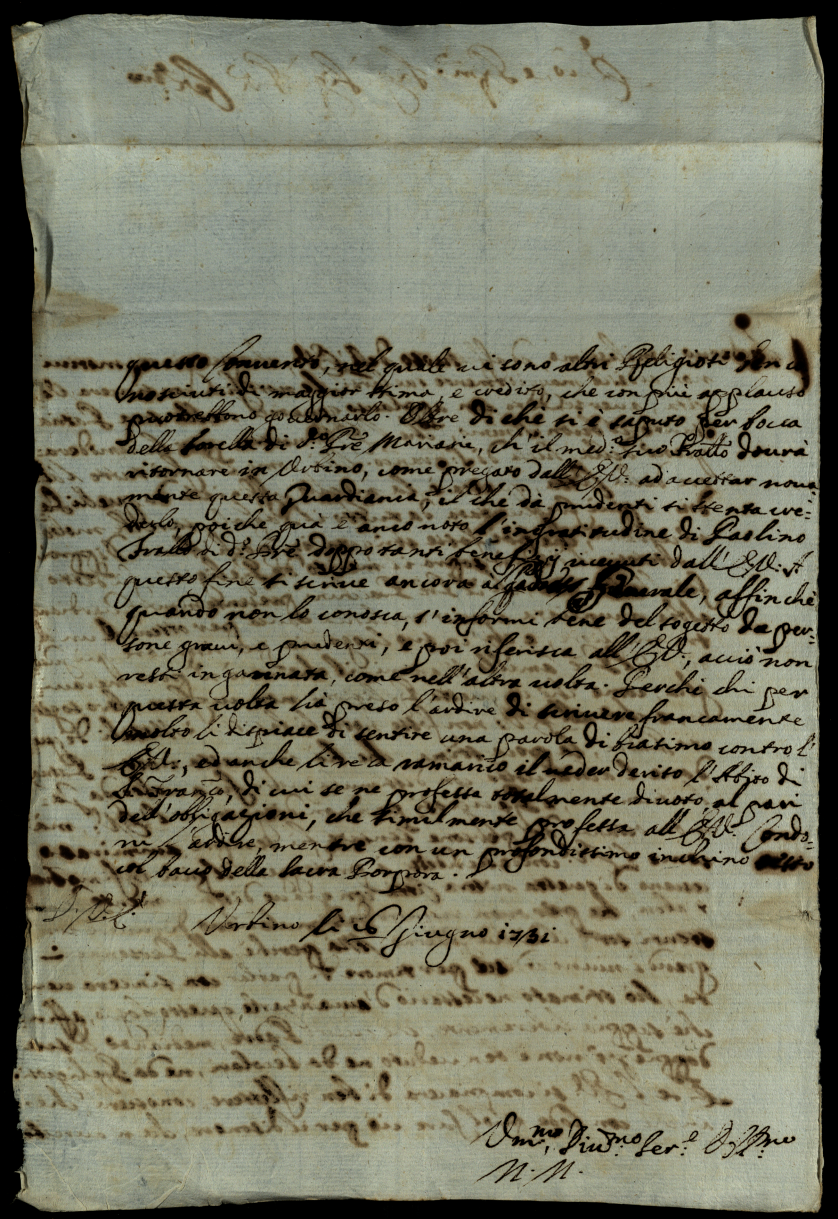 questo Convento, nel quale vi sono altri Religiosi ben co
nosciuti di maggior stima, e credito, che con più applauso
potrebbono governarlo. Oltre di che si è saputo per bocca
della sorella di d.º Pre Mariani, ch'il med.º suo Fratto dovrà
ritornare in Urbino, come pregato dall' E.V. ad accettar nova
mente questa Guardiania, il che da prudenti si stenta cre=
derlo, poiche quà è anco noto l'ingratitudine di Paolino
Fratto di d.º Pre doppo tanti beneficij ricevuti dall' E.V. A
questo fine si scrive ancora al Padre Generale, affinche
quando non lo conosca, s'informi bene del sogetto da per=
sone gravi, e prudenti, e poi riferisca all' E.V., acciò non
resti ingannata, come nell'altra volta. Perche chi per
questa volta hà preso l'ardire di scrivere francamente
molto li dispiace di sentire una parola di biasimo contro l'
E.V., ed anche si reca ramarico il veder deriso l'Abito di
S. Franco, di cui se ne professa totalmente divoto al pari
dell'obligazioni, che similmente professa all' E.V. Condo=
ni l'ardire, mentre con un profondissimo inchino
col bacio della sacra Porpora.
Di V. E.
Urbino li 16 Giugno 1731
Um.mo Div.mo Ser.e Obl.mo
N. N.